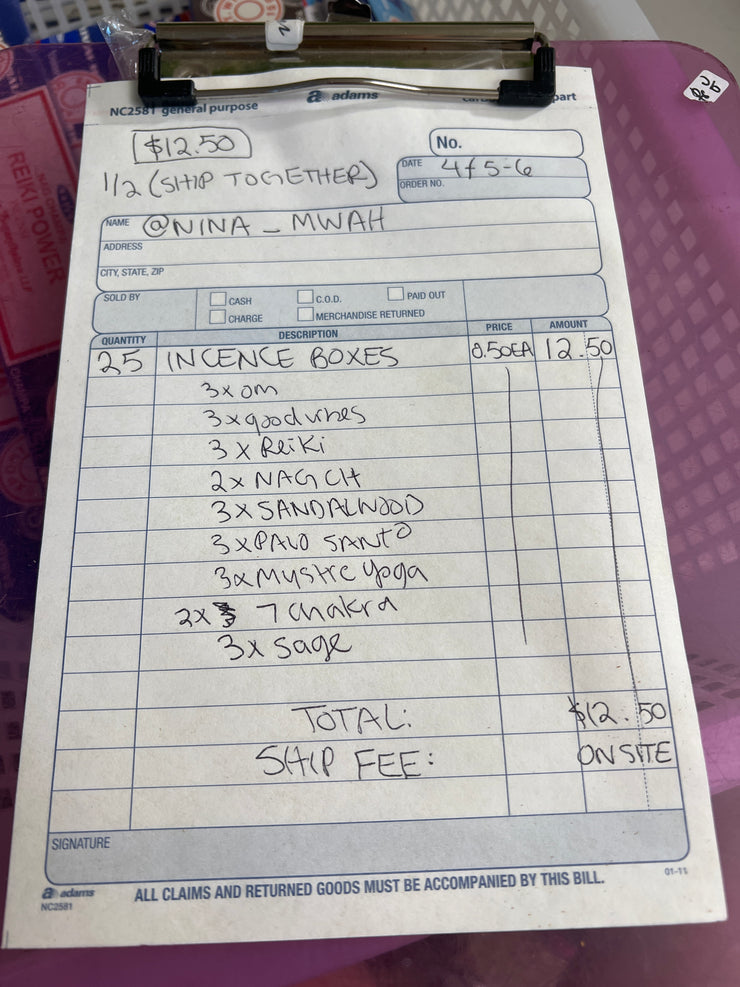 NC2581 general purpose
a adams
part
$12.50
No.
1/2 (SHIP TOGETHER)
DATE 4/5-6
ORDER NO.
NAME @NINA_MWAH
ADDRESS
CITY, STATE, ZIP
SOLD BY
CASH
C.O.D.
PAID OUT
CHARGE
MERCHANDISE RETURNED
QUANTITY DESCRIPTION PRICE AMOUNT
25 INCENCE BOXES 0.50EA 12.50
3x om
3x good vibes
3x Reiki
2x NAG CH
3x SANDALWOOD
3x PALO SANTO
3x Mystic yoga
2x 7 chakra
3x sage
TOTAL: $12.50
SHIP FEE: ON SITE
SIGNATURE
a adams
NC2581
ALL CLAIMS AND RETURNED GOODS MUST BE ACCOMPANIED BY THIS BILL.
01-11
REIKI POWER